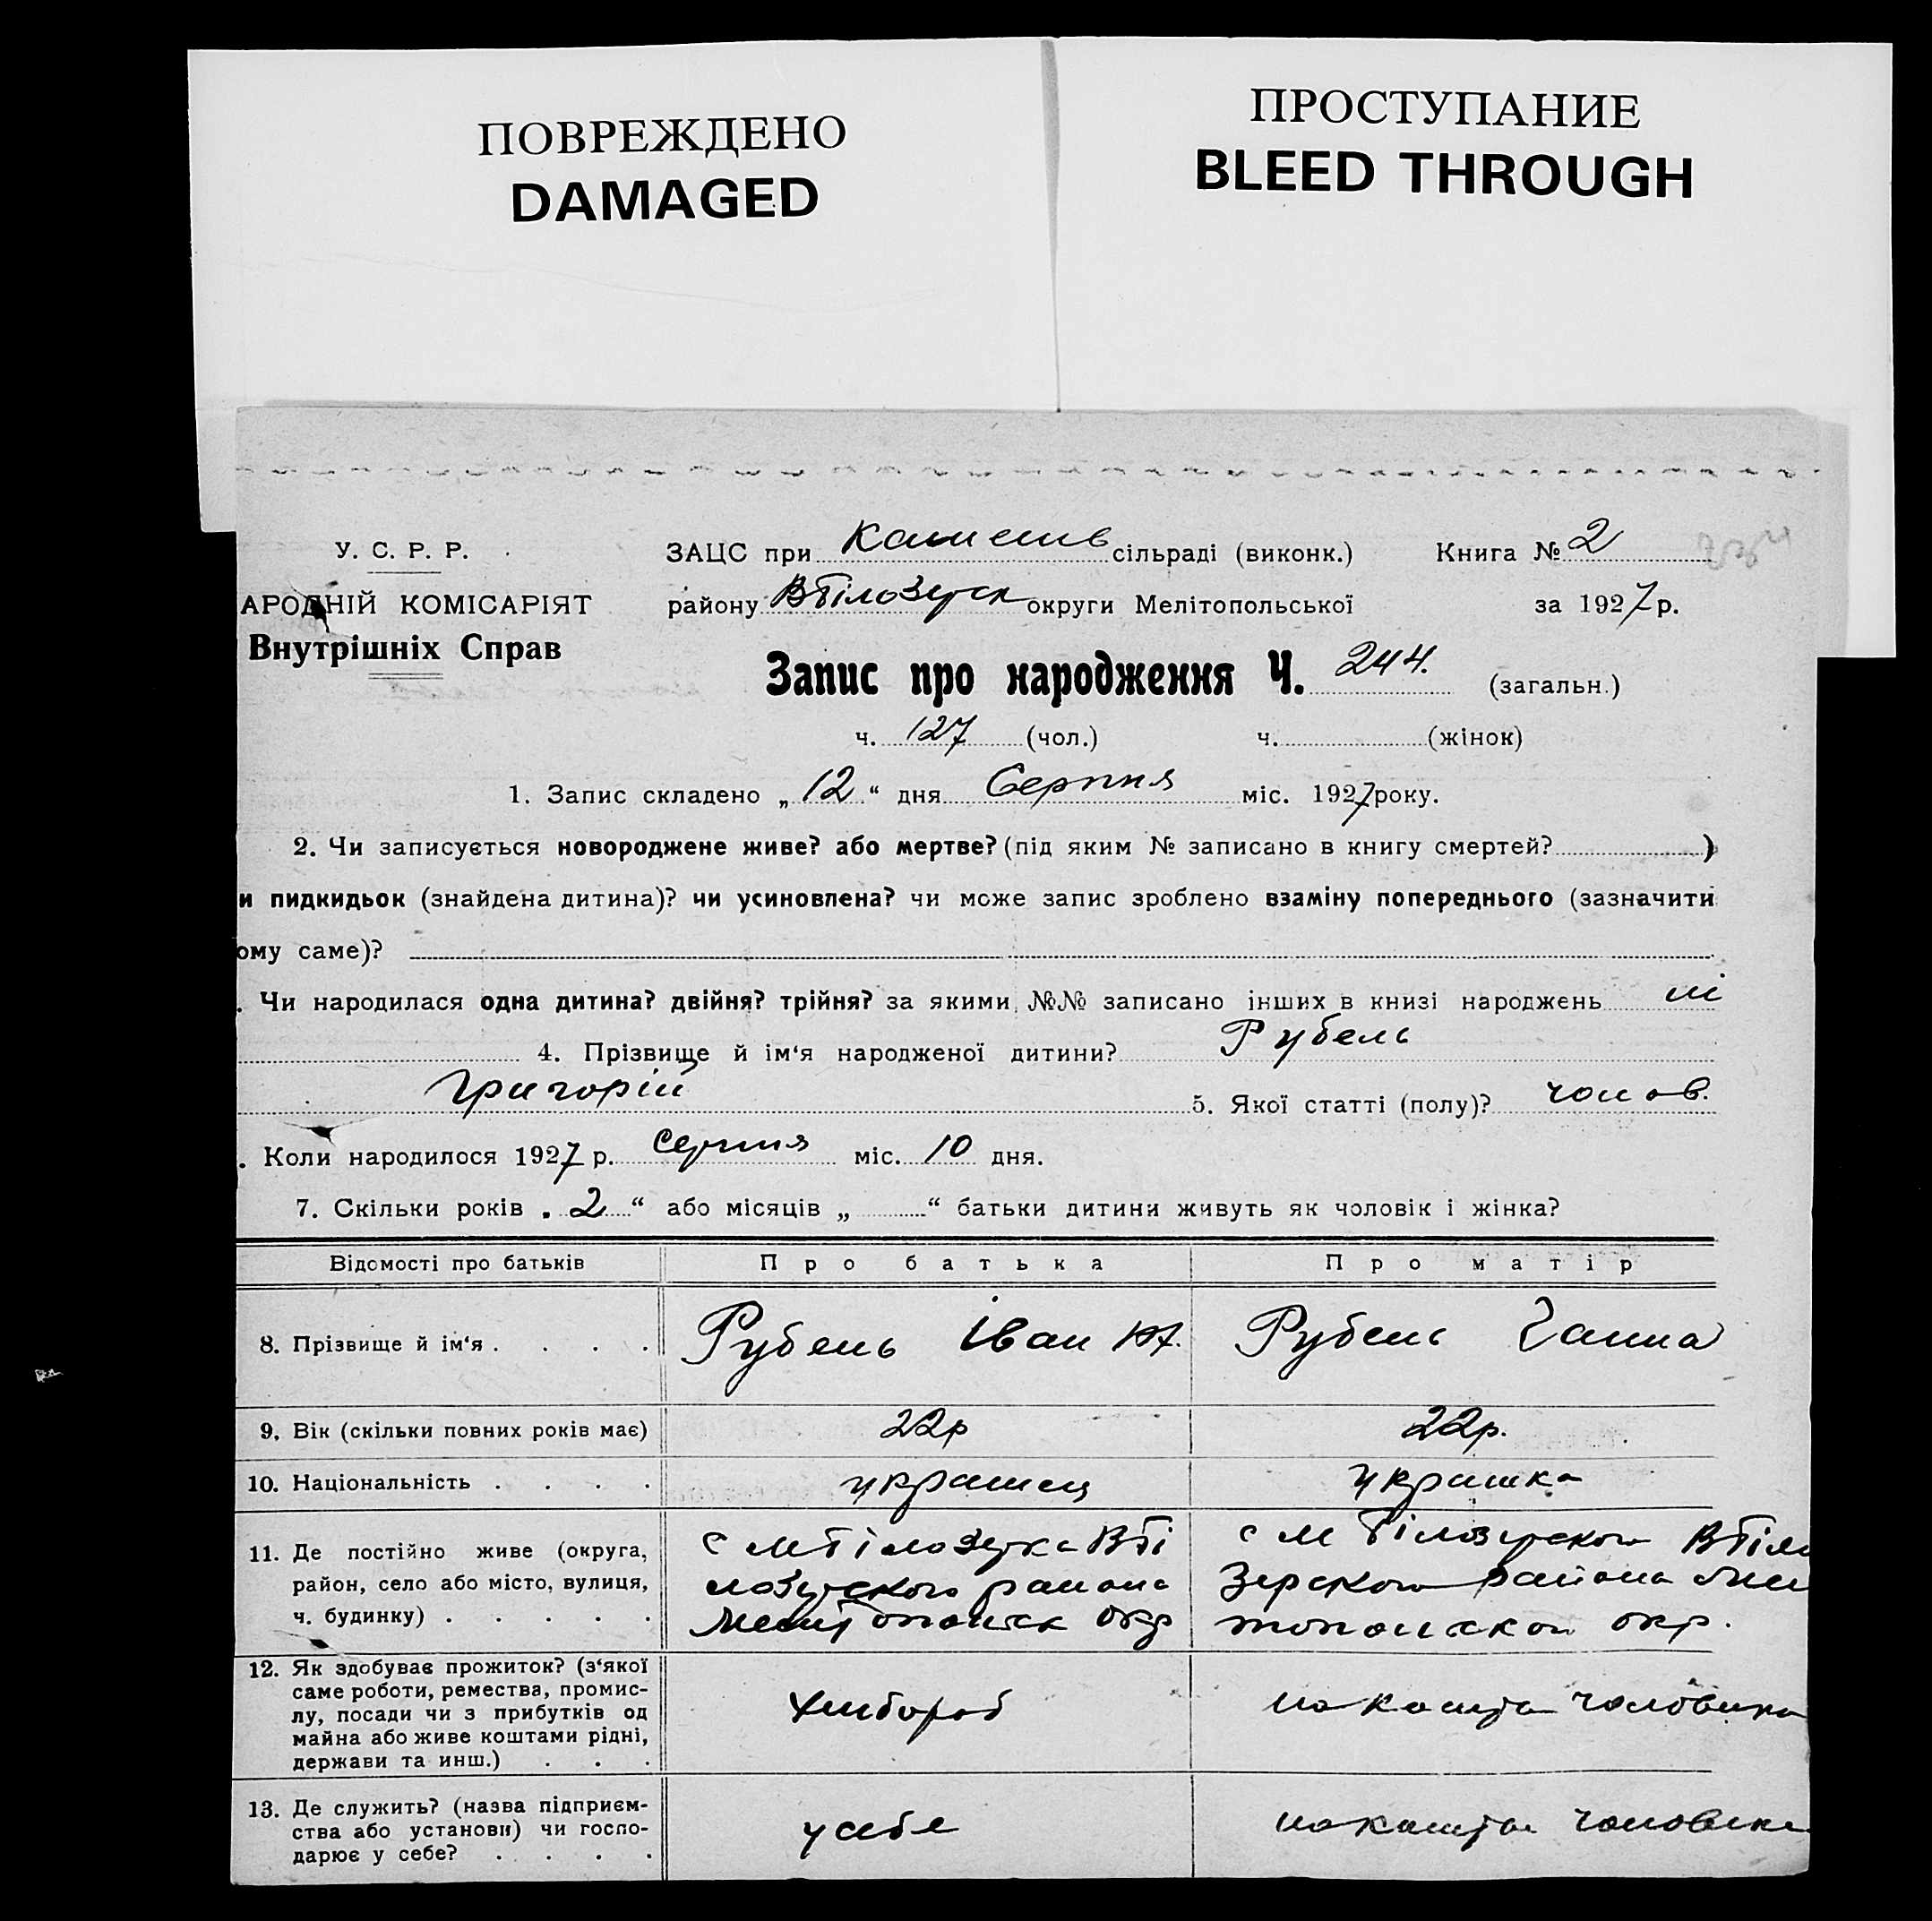 ПОВРЕЖДЕНО
DAMAGED
ПРОСТУПАНИЕ
BLEED THROUGH
У. С. Р. Р.
АРОДНІЙ КОМІСАРІЯТ
Внутрішніх Справ
ЗАЦС при сільраді (виконк.) Книга № 2
району ВБілозерск округи Мелітопольської за 1927 р.
Запис про народження Ч. 244. (загальн.)
ч. 127 (чол.) ч. (жінок)
1. Запис складено „ 12 “ дня Серпня міс. 1927 року.
2. Чи записується новороджене живе? або мертве? (під яким № записано в книгу смертей? )
и пидкидьок (знайдена дитина)? чи усиновлена? чи може запис зроблено взаміну попереднього (зазначити
ому саме)?
. Чи народилася одна дитина? двійня? трійня? за якими №№ записано інших в книзі народжень ні
4. Прізвище й ім‘я народженої дитини? Рубель
Григорій 5. Якої статті (полу)? чолов.
. Коли народилося 1927 р. Серпня міс. 10 дня.
7. Скільки років „ 2 “ або місяців „ “ батьки дитини живуть як чоловік і жінка?
Відомості про батьків Про батька Про матір
8. Прізвище й ім‘я . . . . Рубель Іван Рубель Ганна
9. Вік (скільки повних років має) 22р 22р.
10. Національність . . . . украинец украинка
11. Де постійно живе (округа,
район, село або місто, вулиця,
ч. будинку) . . . . .
с МБілозерка ВБі
лозерского района
Мелитопольск окр
с М Білозерского ВБіло
Зерского района Мели
топольской окр.
12. Як здобуває прожиток? (з‘якої
саме роботи, ремества, промис-
лу, посади чи з прибутків од
майна або живе коштами рідні,
держави та инш.) . . .
хлибороб
на кошта чоловика
13. Де служить? (назва підприєм-
ства або установи) чи госпо-
дарює у себе? . . . .
у себе
на кошта чоловика